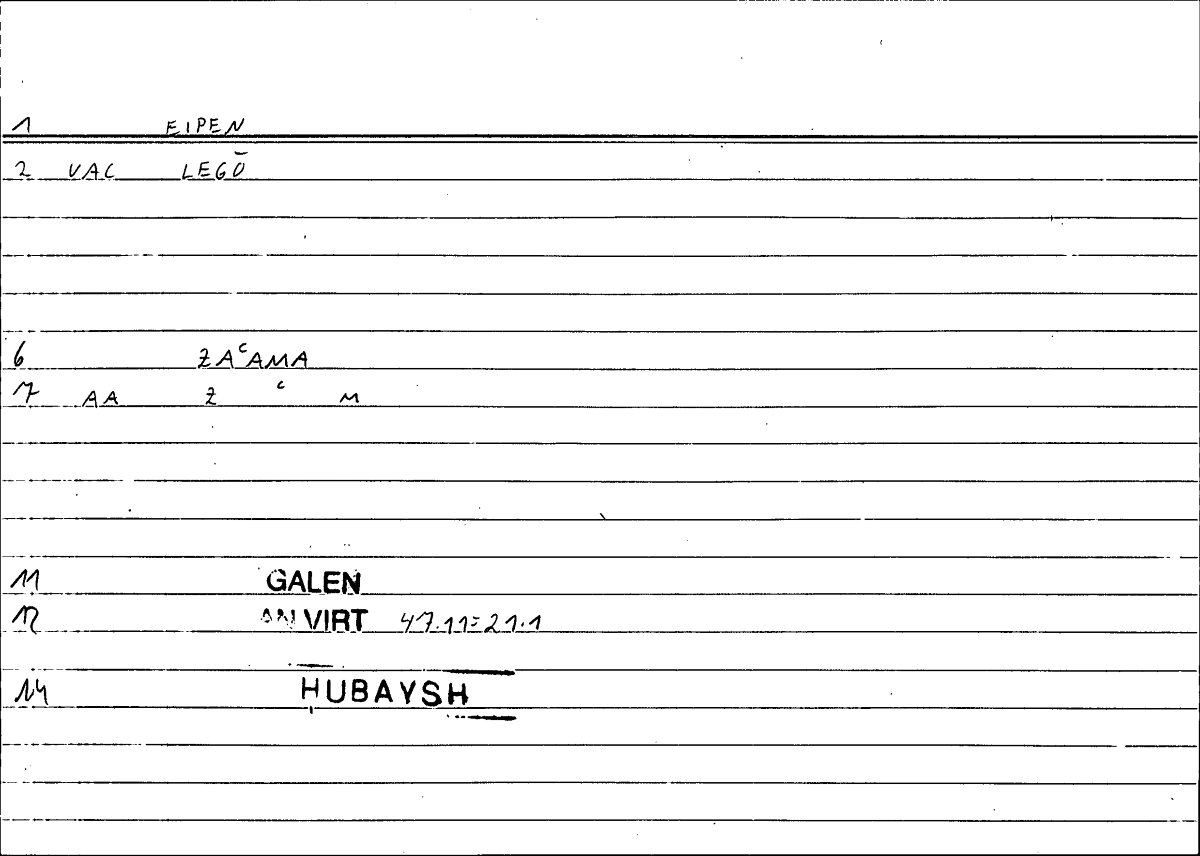 1 EIPEN
2 VAC LEGŌ
6 ZAᶜAMA
7 AA Z ᶜ M
11 GALEN
12 AN VIRT 47.11=21.1
14 HUBAYSH